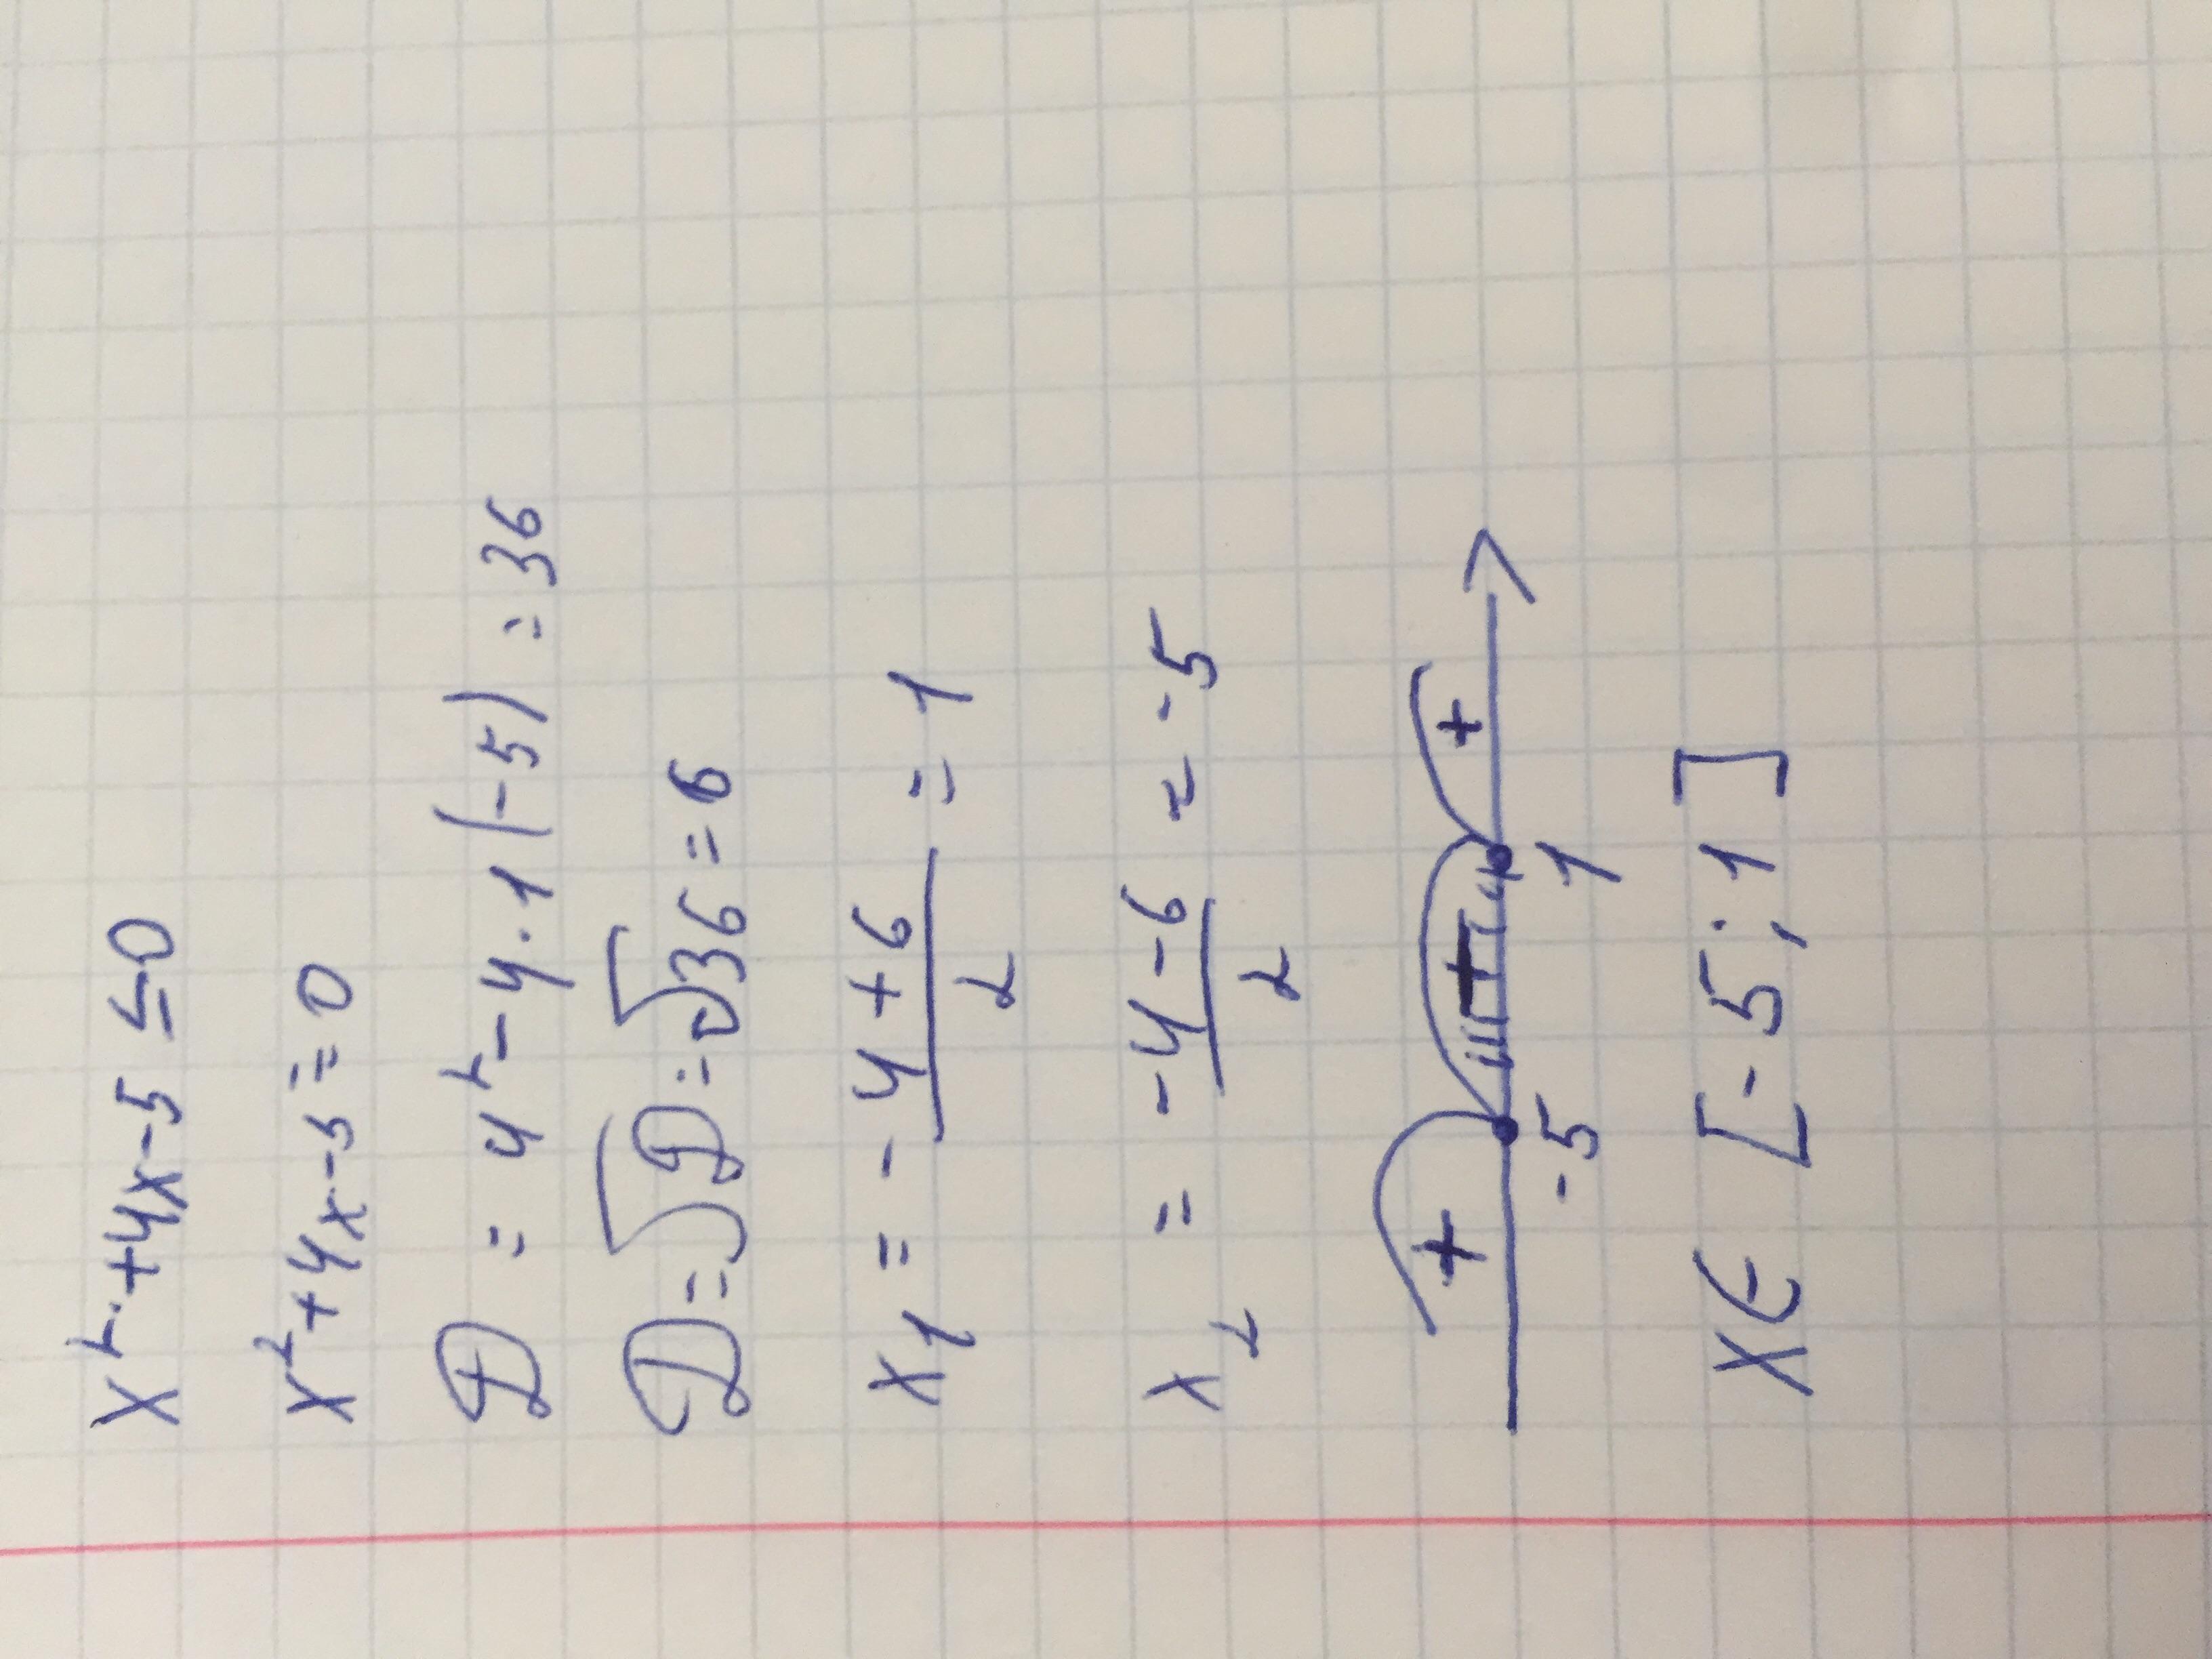 x²+4x-5≤0
x²+4x-5=0
D = 4²-4·1(-5)=36
D=√D=√36=6
x₁ = -4+6/2 = 1
x₂ = -4-6/2 = -5
+ - +
-5 1
x∈ [-5;1]